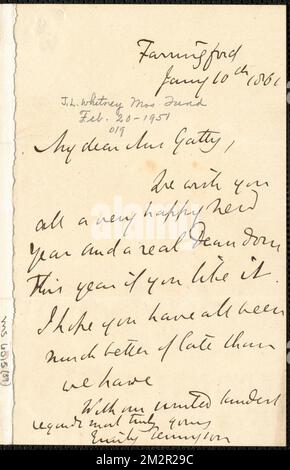 Farringford
Jany 10th 1861
J.L. Whitney Mss Fund
Feb. 20-1951
019
My dear Mrs Gatty,
We wish you
all a very happy New
Year and a real Deandom
this year if you like it.
I hope you have all been
much better of late than
we have
With our united kindest
regards most truly yours
Emily Tennyson
alamy
Image ID: 2M2R29C
www.alamy.com